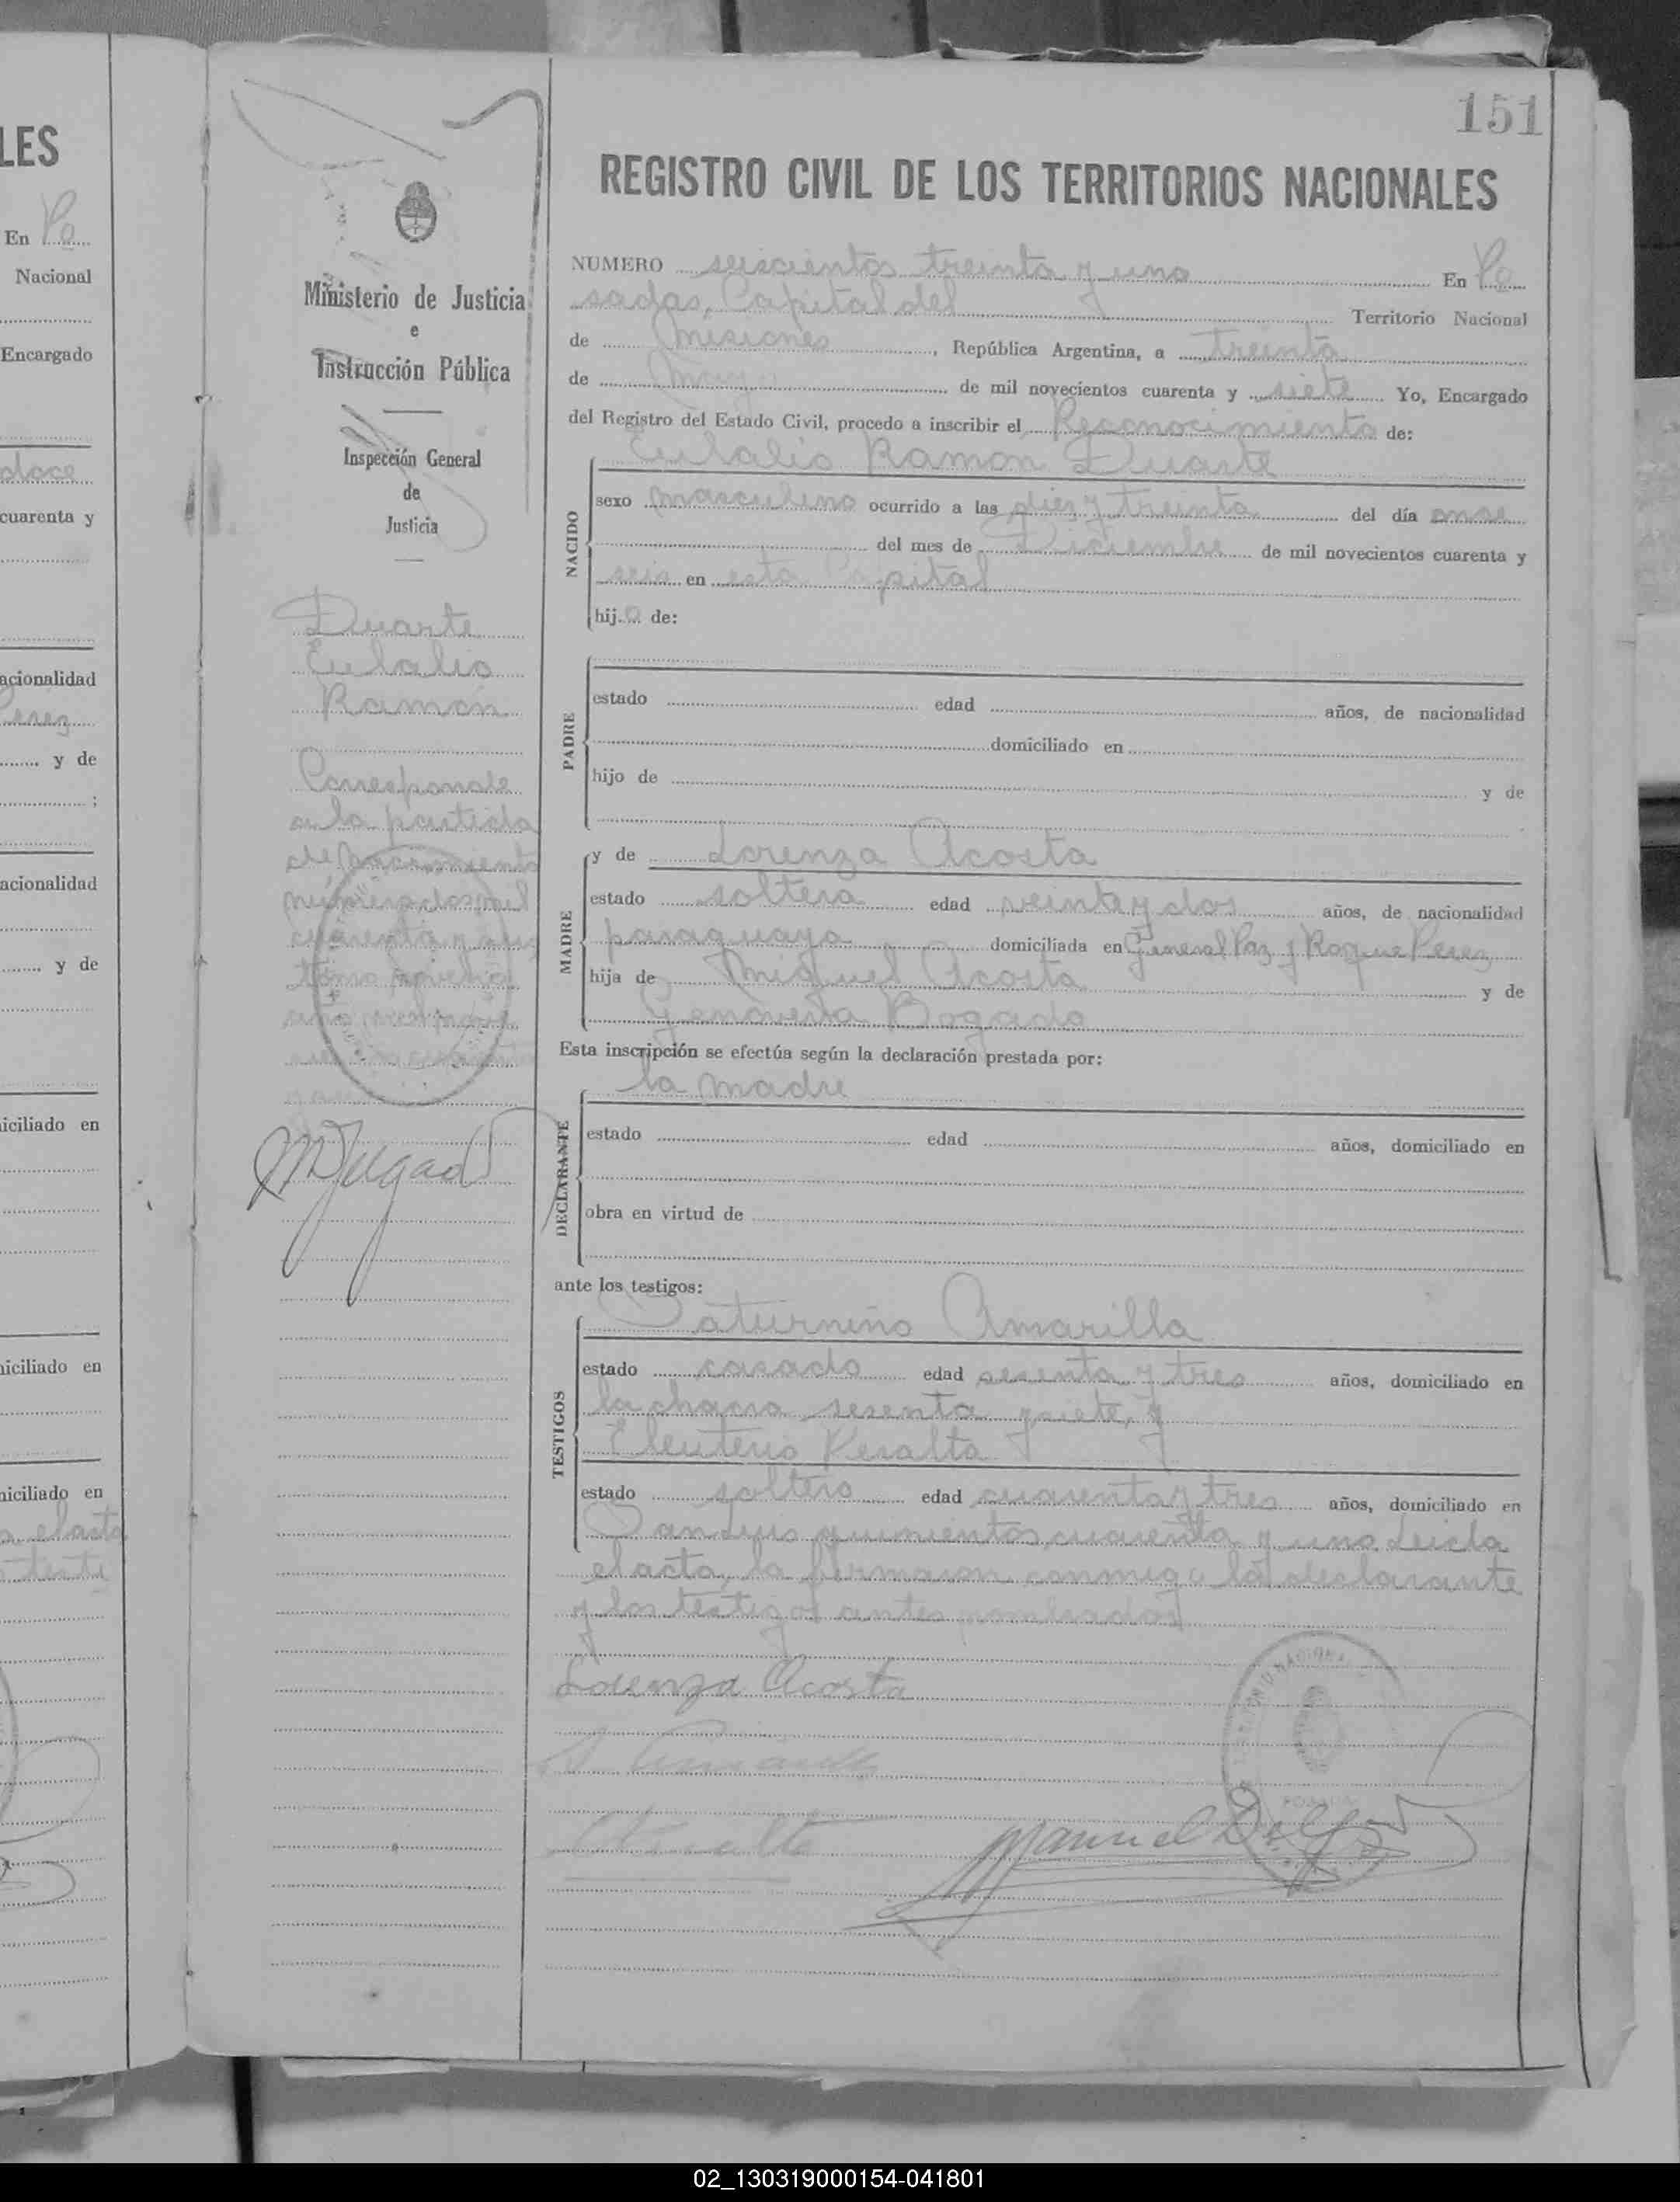 LES
En Po
Nacional
Encargado
doce
cuarenta y
acionalidad
Perez
y de
;
acionalidad
y de
iciliado en
niciliado en
niciliado en
Ministerio de Justicia
e
Instrucción Pública
Inspección General
de
Justicia
Duarte
Eulalio
Ramón
Corresponde
a la partida
de nacimiento
número dos mil
cuarenta y
tomo
año mil nove
MDelgado
151
REGISTRO CIVIL DE LOS TERRITORIOS NACIONALES
NUMERO seiscientos treinta y uno En Po
sadas, Capital del Territorio Nacional
de Misiones, República Argentina, a treinta
de Mayo de mil novecientos cuarenta y siete Yo, Encargado
del Registro del Estado Civil, procedo a inscribir el Reconocimiento de:
Eulalio Ramon Duarte
NACIDO
sexo masculino ocurrido a las diez y treinta del día onse
del mes de Diciembre de mil novecientos cuarenta y
seis en esta Capital
hijo de:
PADRE
estado edad años, de nacionalidad
domiciliado en
hijo de y de
MADRE
y de Lorenza Acosta
estado soltera edad veinte y dos años, de nacionalidad
paraguaya domiciliada en General Paz y Roque Perez
hija de Miguel Acosta y de
Genoveva Bogado
Esta inscripción se efectúa según la declaración prestada por:
la madre
DECLARANTE
estado edad años, domiciliado en
obra en virtud de
ante los testigos:
Saturnino Amarilla
TESTIGOS
estado casado edad sesenta y tres años, domiciliado en
la chacra sesenta y siete, y
Eleuterio Peralta
estado soltero edad cuarenta y tres años, domiciliado en
San Luis quinientos cuarenta y uno. Leida
el acta, la firmaron conmigo la declarante
y los testigos antes nombrados
Lorenza Acosta
Manuel Delgado
02_130319000154-041801